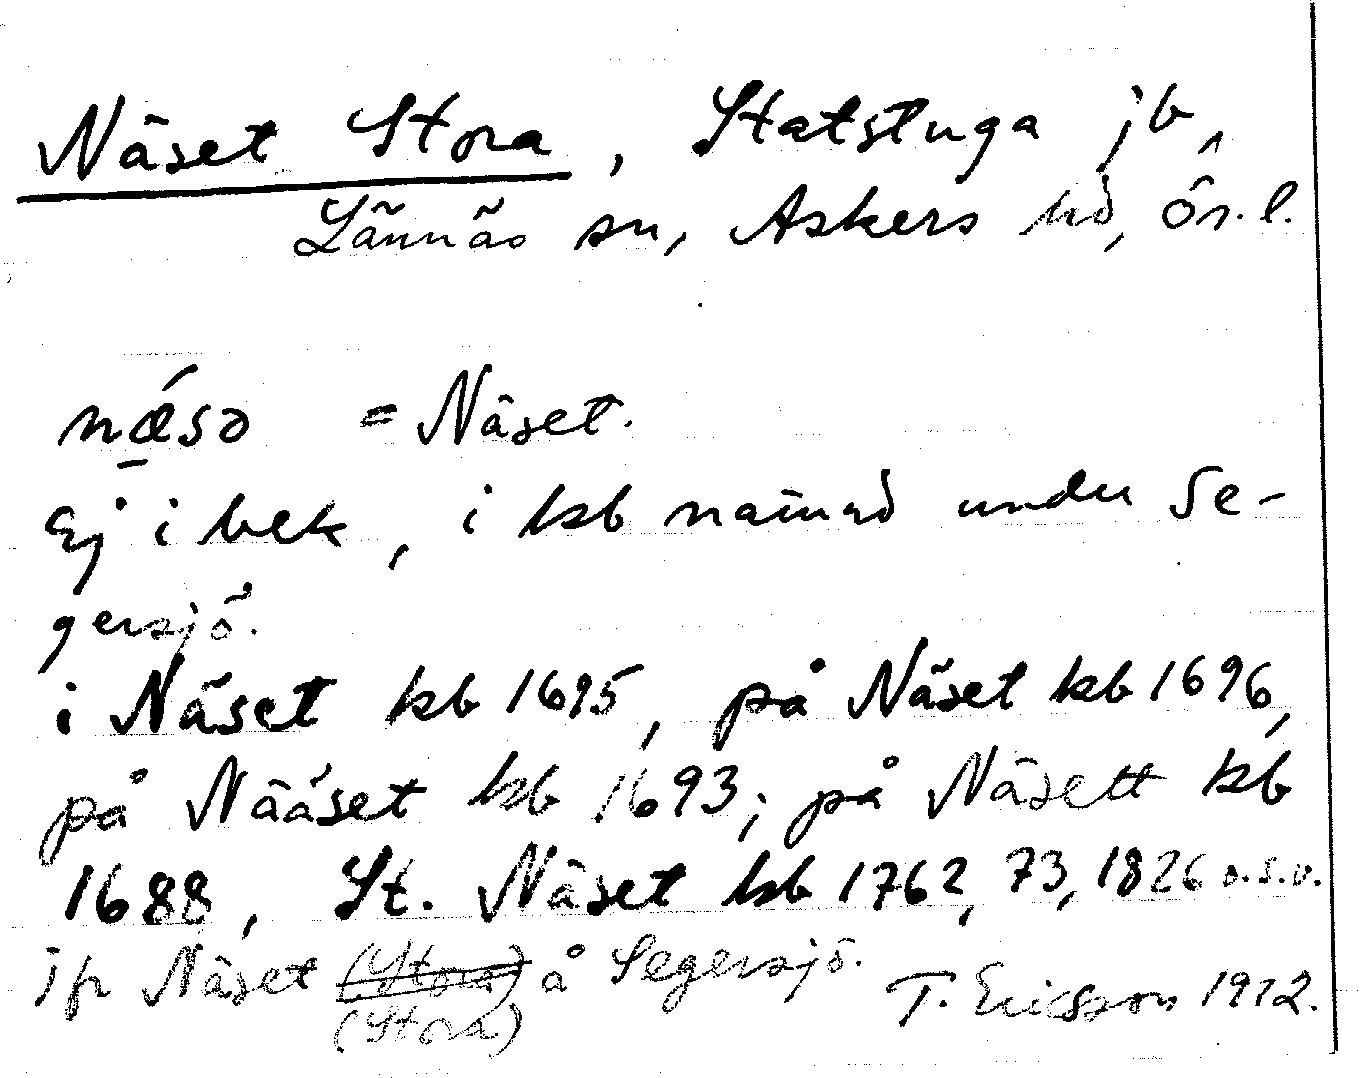 Näset Stora, Statstuga jb,
Lännäs sn, Askers hd, Ör. l.
nǽsə = Näset.
Ej i bek, i kb nämnd under Se-
gersjö.
i Näset kb 1695, på Näset kb 1696,
på Nääset kb 1693; på Näsett kb
1688, St. Näset kb 1762, 73, 1826 o.s.v.
jfr Näset (Stora) å Segersjö.
(Stora)
T. Ericsson 1912.